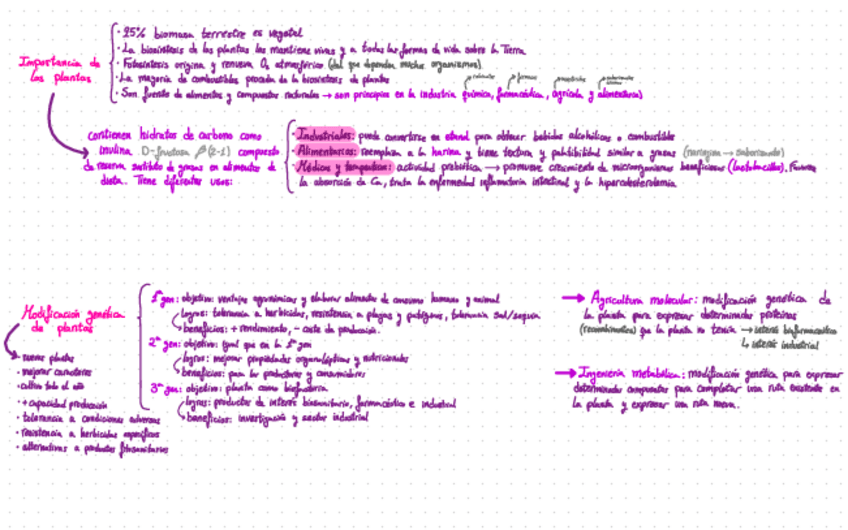 Importancia de
las plantas
· 95% biomasa terrestre es vegetal
· La biosíntesis de las plantas las mantiene vivas y a todas las formas de vida sobre la Tierra
· Fotosíntesis origina y renueva O₂ atmosférico (del que dependen muchos organismos)
· La mayoría de combustibles procede de la biosíntesis de plantas
· Son fuente de alimentos y compuestos naturales → son principios en la industria química, farmacéutica, agrícola y alimentaria
contienen hidratos de carbono como
inulina D-fructosa β(2-1) compuesto
de reserva sustituto de grasas en alimentos de
dieta. Tiene diferentes usos:
· Industriales: puede convertirse en etanol para obtener bebidas alcohólicas o combustible
· Alimentarias: reemplaza a la harina y tiene textura y palatibilidad similar a grasas (→ saborizante)
· Médicos y terapeúticos: actividad prebiótica → promueve crecimiento de microorganismos beneficiosos (lactobacillus). Favorece
la absorción de Ca, trata la enfermedad inflamatoria intestinal y la hipercolesterolemia.
Modificación genética
de plantas
· nuevas plantas
· mejorar caracteres
· cultivo todo el año
· + capacidad producción
· tolerancia a condiciones adversas
· resistencia a herbicidas específicos
· alternativas a productos fitosanitarios
1ª gen: objetivo: ventajas agronómicas y elaborar alimentos de consumo humano y animal
logros: tolerancia a herbicidas, resistencia a plagas y patógenos, tolerancia sal/sequía
beneficios: + rendimiento, - coste de producción.
2ª gen: objetivo: igual que en la 1ª gen
logros: mejorar propiedades organolépticas y nutricionales
beneficios: para los productores y consumidores
3ª gen: objetivo: planta como biofactoría
logros: productos de interés biosanitario, farmacéutico e industrial
beneficios: investigación y sector industrial
→ Agricultura molecular: modificación genética de
la planta para expresar determinadas proteínas
(recombinantes) que la planta no tenía → interés biofarmacéutico
↳ interés industrial
→ Ingeniería metabólica: modificación genética para expresar
determinados compuestos para completar una ruta existente en
la planta y expresar una ruta nueva.